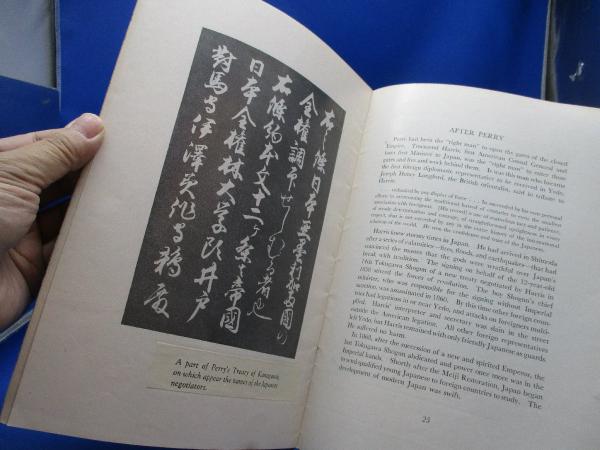 右之條日本亜墨利加両国の
全権調印せしむる者也
右條約本文十二ヶ條
日本全権林大学頭井戸
對馬守伊澤美作守鵜殿
A part of Perry's Treaty of Kanagawa,
on which appear the names of the Japanese
negotiators.
AFTER PERRY
Perry had been the "right man" to open the gates of the closed
Empire. Townsend Harris, first American Consul General and
later first Minister to Japan, was the "right man" to enter those
gates and live and work behind them. It was this man who became
the first foreign diplomatic representative to be received in Yedo,
Joseph Henry Longford, the British orientalist, said in tribute to
Harris:
unaided by any display of force . . . he succeeded by his own personal
Harris knew stormy times in Japan. He had arrived in Shimoda
after a series of calamities—fires, floods, and earthquakes—that had
convinced the masses that the gods were wrathful over Japan's
break with tradition. The signing on behalf of the 12-year-old
14th Tokugawa Shogun of a new treaty negotiated by Harris in
1858 stirred the forces of revolution. The boy Shogun's chief
minister, who was responsible for the signing without Imperial
sanction, was assassinated in 1860. By this time other foreign coun-
tries had legations in or near Yedo, and attacks on foreigners multi-
plied. Harris' interpreter and secretary was slain in the street
outside the American legation. All other foreign representatives
left Yedo, but Harris remained with only friendly Japanese as guards.
He suffered no harm.
In 1868, after the succession of a new and spirited Emperor, the
last Tokugawa Shogun abdicated and power once more was in the
Imperial hands. Shortly after the Meiji Restoration, Japan began
to send qualified young Japanese to foreign countries to study. The
development of modern Japan was swift.
25